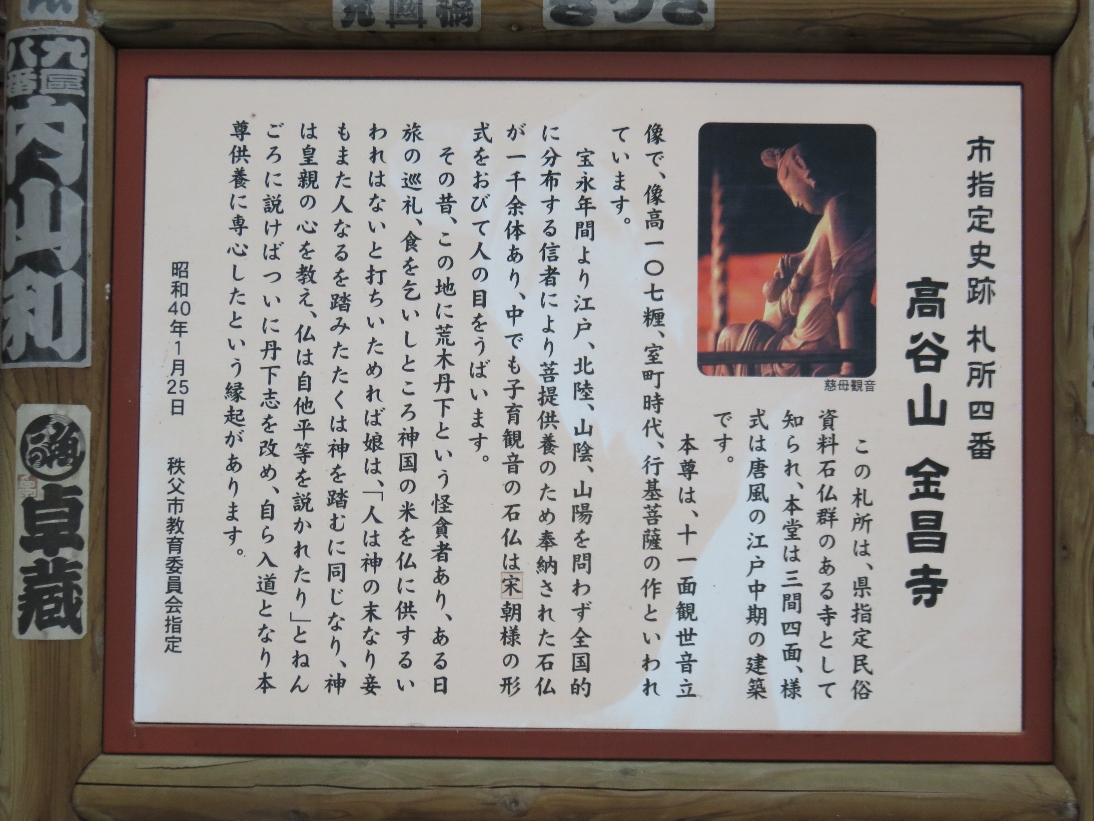 市指定史跡 札所四番
高谷山 金昌寺
慈母観音
この札所は、県指定民俗
資料石仏群のある寺として
知られ、本堂は三間四面、様
式は唐風の江戸中期の建築
です。
本尊は、十一面観世音立
像で、像高一〇七糎、室町時代、行基菩薩の作といわれ
ています。
宝永年間より江戸、北陸、山陰、山陽を問わず全国的
に分布する信者により菩提供養のため奉納された石仏
が一千余体あり、中でも子育観音の石仏は宋朝様の形
式をおびて人の目をうばいます。
その昔、この地に荒木丹下という怪貪者あり、ある日
旅の巡礼、食を乞いしところ神国の米を仏に供するい
われはないと打ちいためれば娘は、「人は神の末なり妾
もまた人なるを踏みたたくは神を踏むに同じなり、神
は皇親の心を教え、仏は自他平等を説かれたり」とねん
ごろに説けばついに丹下志を改め、自ら入道となり本
尊供養に専心したという縁起があります。
昭和40年1月25日 秩父市教育委員会指定
九區
八番
内山利
卓蔵